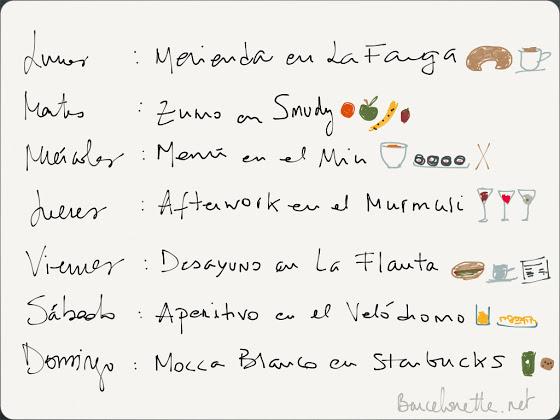 Lunes : Merienda en La Fanga
Martes : Zumo en Smudy
Miércoles : Menú en el Min
Jueves : Afterwork en el Murmuri
Viernes : Desayuno en La Flauta
Sábado : Aperitivo en el Velódromo
Domingo : Mocca Blanco en Starbucks
Barcelonette.net